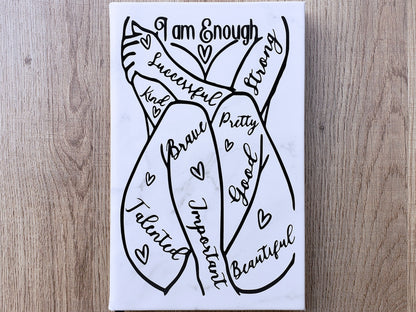 I am Enough
Successful
Strong
Kind
Brave
Pretty
Good
Talented
Important
Beautiful